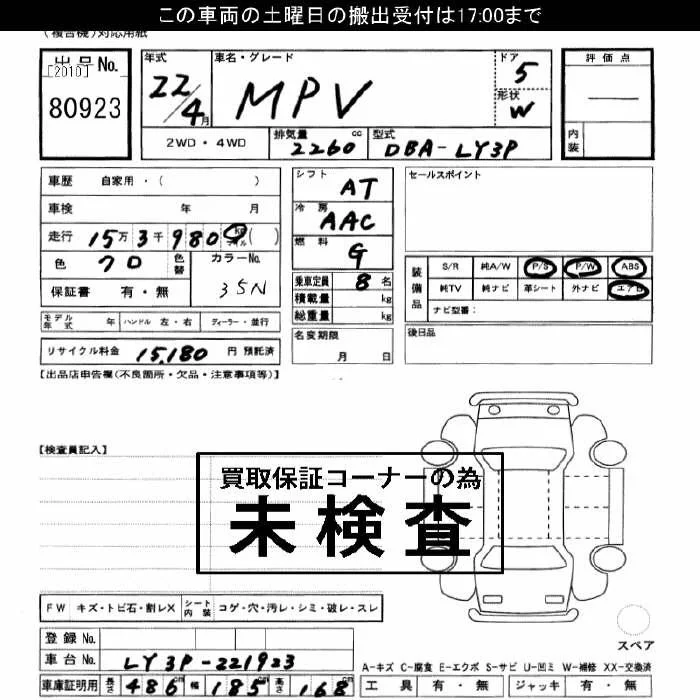 この車両の土曜日の搬出受付は17:00まで
(複合機)対応用紙
出品No. [2010] 80923
年式 22/4月
車名・グレード MPV
ドア 5
形状 W
評価点 —
内装
2WD・4WD
排気量 2260 cc
型式 DBA-LY3P
車歴 自家用・( )
車検 年 月
走行 15万3千980 km マイル ( )
色 クロ 色替 カラーNo. 35N
保証書 有・無
モデル年式 年 ハンドル 左・右 ディーラー・並行
リサイクル料金 15,180 円 預託済
シフト AT
冷房 AAC
燃料 G
乗車定員 8 名
積載量 kg
総重量 kg
名変期限 月 日
セールスポイント
装備品
S/R 純A/W P/S P/W ABS
純TV 純ナビ 革シート 外ナビ エアB
ナビ型番:
後日品
【出品店申告欄(不良箇所・欠品・注意事項等)】
【検査員記入】
買取保証コーナーの為
未検査
FW キズ・トビ石・割レX シート内装 コゲ・穴・汚レ・シミ・破レ・スレ
登録No.
車台No. LY3P-221923
車庫証明用 長さ 486 cm 幅 185 cm 高さ 168 cm
スペア
A-キズ C-腐食 E-エクボ S-サビ U-凹ミ W-補修 XX-交換済
工具 有・無 ジャッキ 有・無